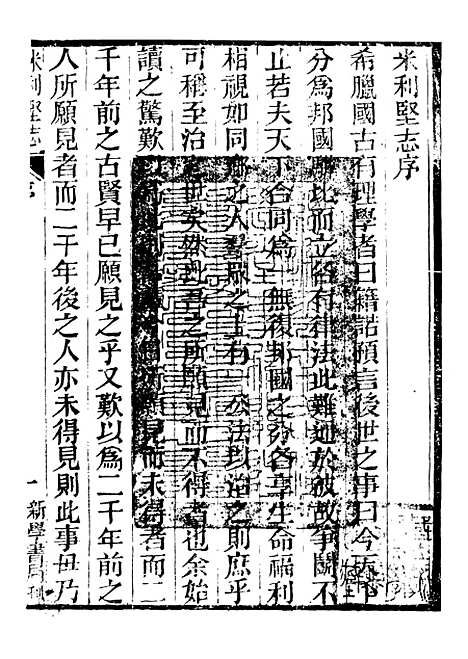 米利堅志序
希臘國古有理學者曰籍諾預言後世之事曰今天下
分為邦國鄰比而立各有律法此難通於彼故爭鬭不
止若夫天下合同為一無復邦國之分各享生命福利
相視如同鄉之人羣眾之上有一公法以治之則庶乎
可稱至治之世矣然此吾之所願見而不得者也余始
讀之驚歎以為
所願見而未得者而二
千年前之古賢早已願見之乎又歎以為二千年前之
人所願見者而二千年後之人亦未得見則此事毋乃
米利堅志
序
一
新學書局刊